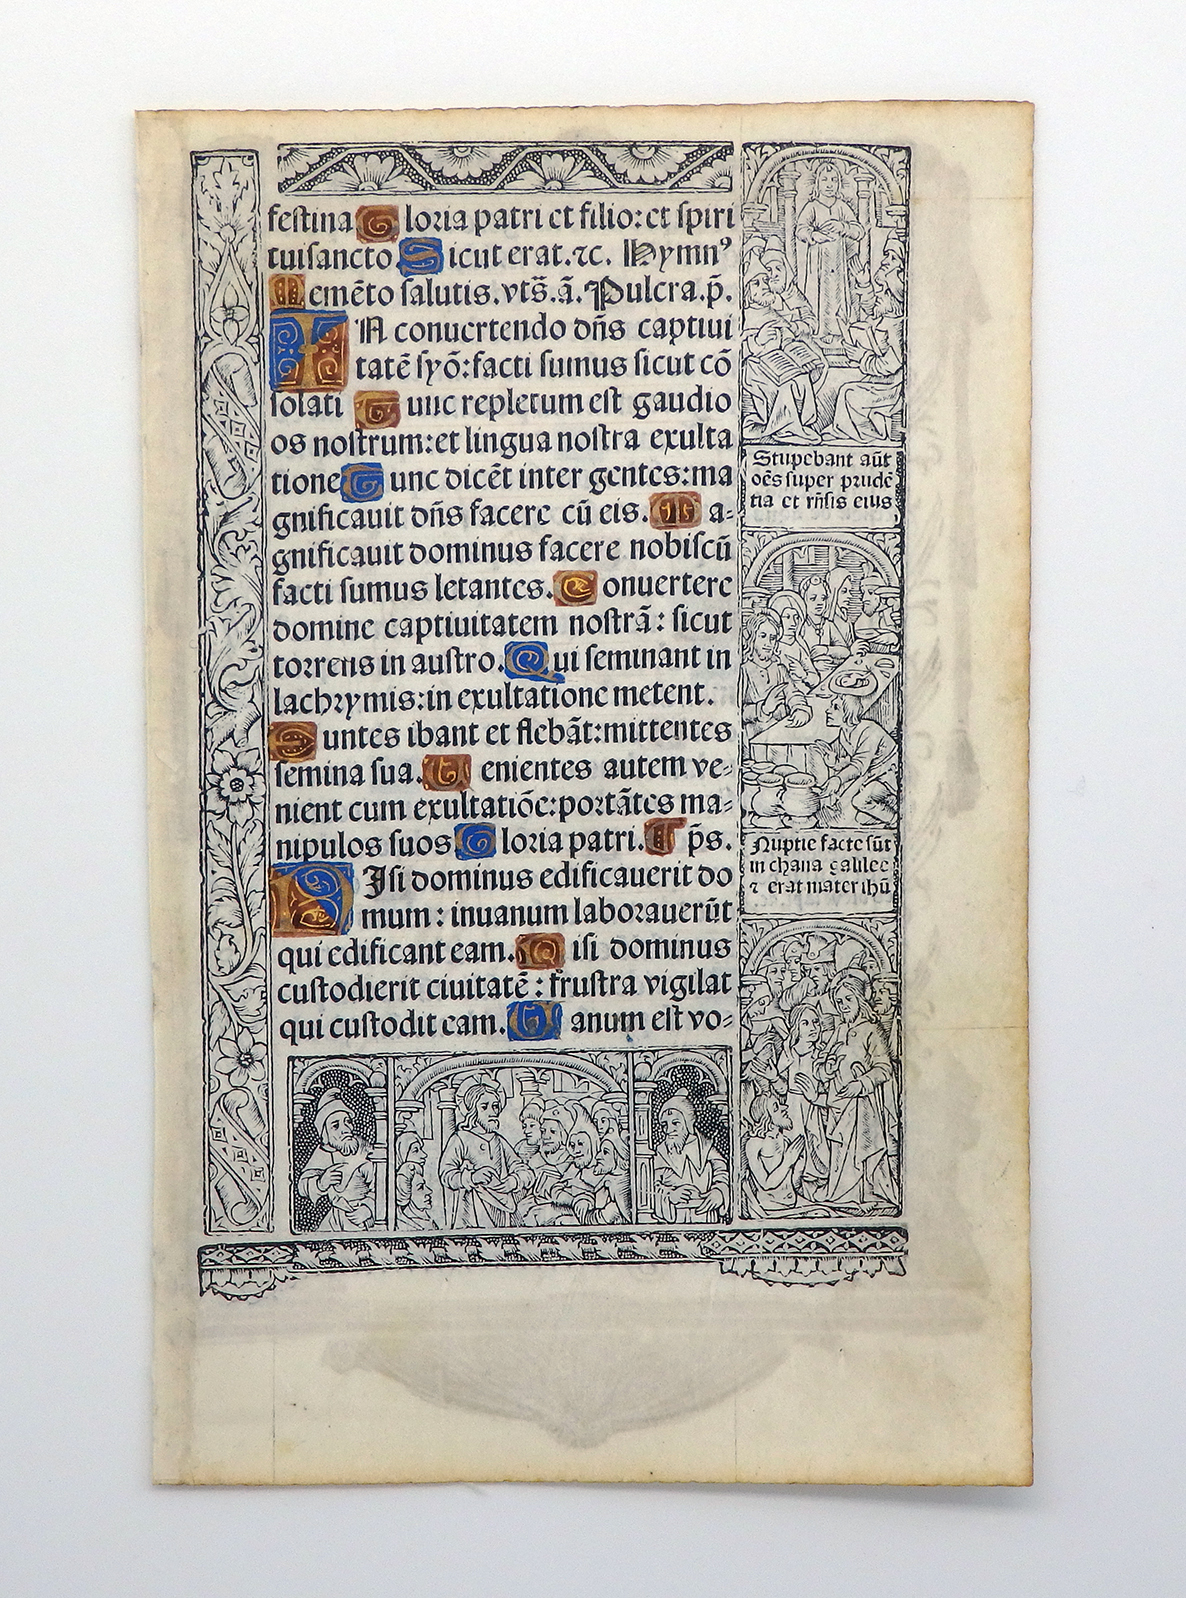 festina Gloria patri et filio: et spiri
tuisancto Sicut erat. ⁊c. Hymnꝰ
Memēto salutis. vts̄. ā. Pulcra. p̄.
IN conuertendo dn̄s captiui
tatē syō: facti sumus sicut cō
solati Tunc repletum est gaudio
os nostrum: et lingua nostra exulta
tione Tunc dicēt inter gentes: ma
gnificauit dn̄s facere cū eis. Ma=
gnificauit dominus facere nobiscū
facti sumus letantes. Conuertere
domine captiuitatem nostrā: sicut
torrens in austro. Qui seminant in
lachrymis: in exultatione metent.
Euntes ibant et flebāt: mittentes
semina sua. Uenientes autem ve=
nient cum exultatiōe: portātes ma=
nipulos suos Gloria patri. p̄s.
NIsi dominus edificauerit do
mum: inuanum laborauerūt
qui edificant eam. Nisi dominus
custodierit ciuitatē: frustra vigilat
qui custodit eam. Uanum est vo=
Stupebant aūt
oēs super prudē
tia et rn̄sis eius
Nuptie facte sūt
in chana galilee
⁊ erat mater ihū